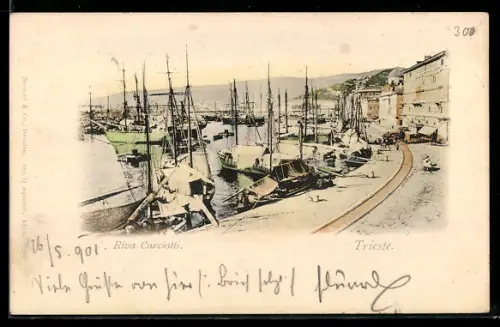 300
Riva Carciotti.
Trieste.
26/5 901
Viele Grüße von hier! Brief folgt!